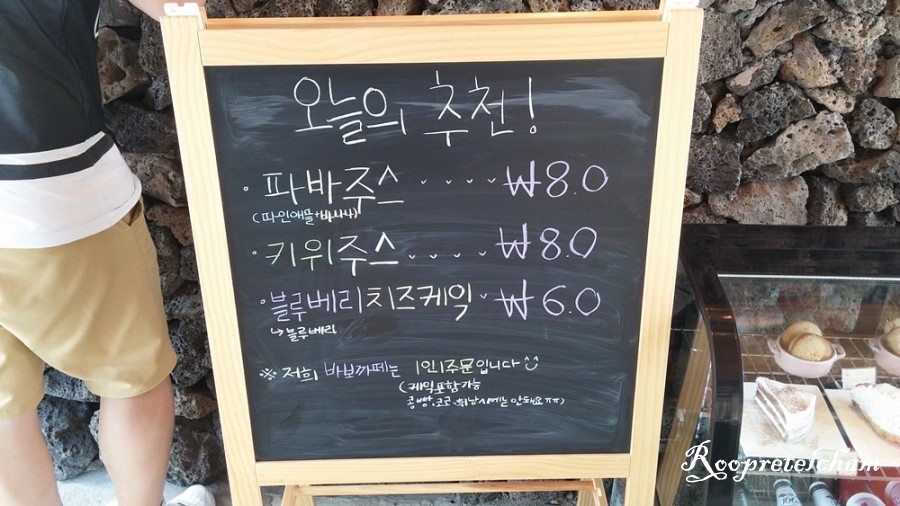 오늘의 추천!
· 파바주스 ₩8.0
(파인애플+바나나)
· 키위주스 .... ₩8.0
· 블루베리치즈케익 ₩6.0
↳ 블루베리
※ 저희 바보까페는 1인1주문입니다
(케익포함가능
콩빵, 코로 에는 안돼요 ㅠㅠ)
Roopretelcham